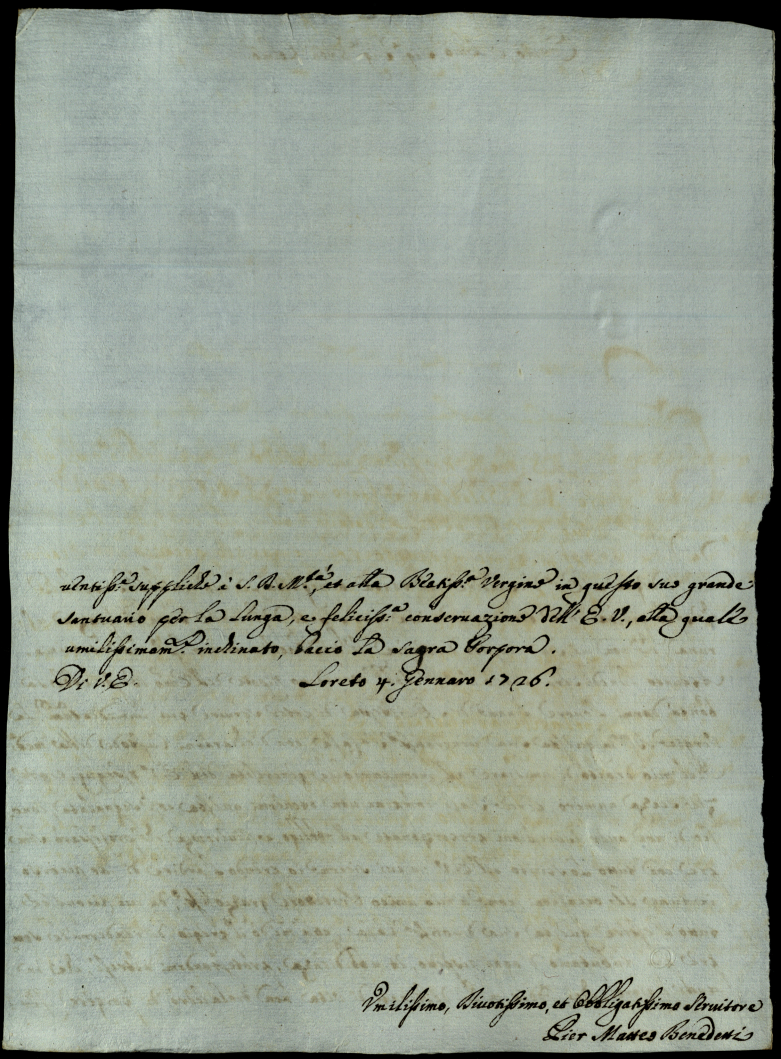 uentiss.e suppliche à S. D. M.tà, et alla Beatiss.a Vergine in questo suo grande
santuario per la lunga, e feliciss.a conseruazione dell' E. V., alla quale
umilissimam.te inchinato, bacio la sagra Porpora.
Di V. E. Loreto 4. Gennaro 1726.
Vmilissimo, Diuotissimo, et Obbligatissimo Seruitore
Pier Matteo Benedetti